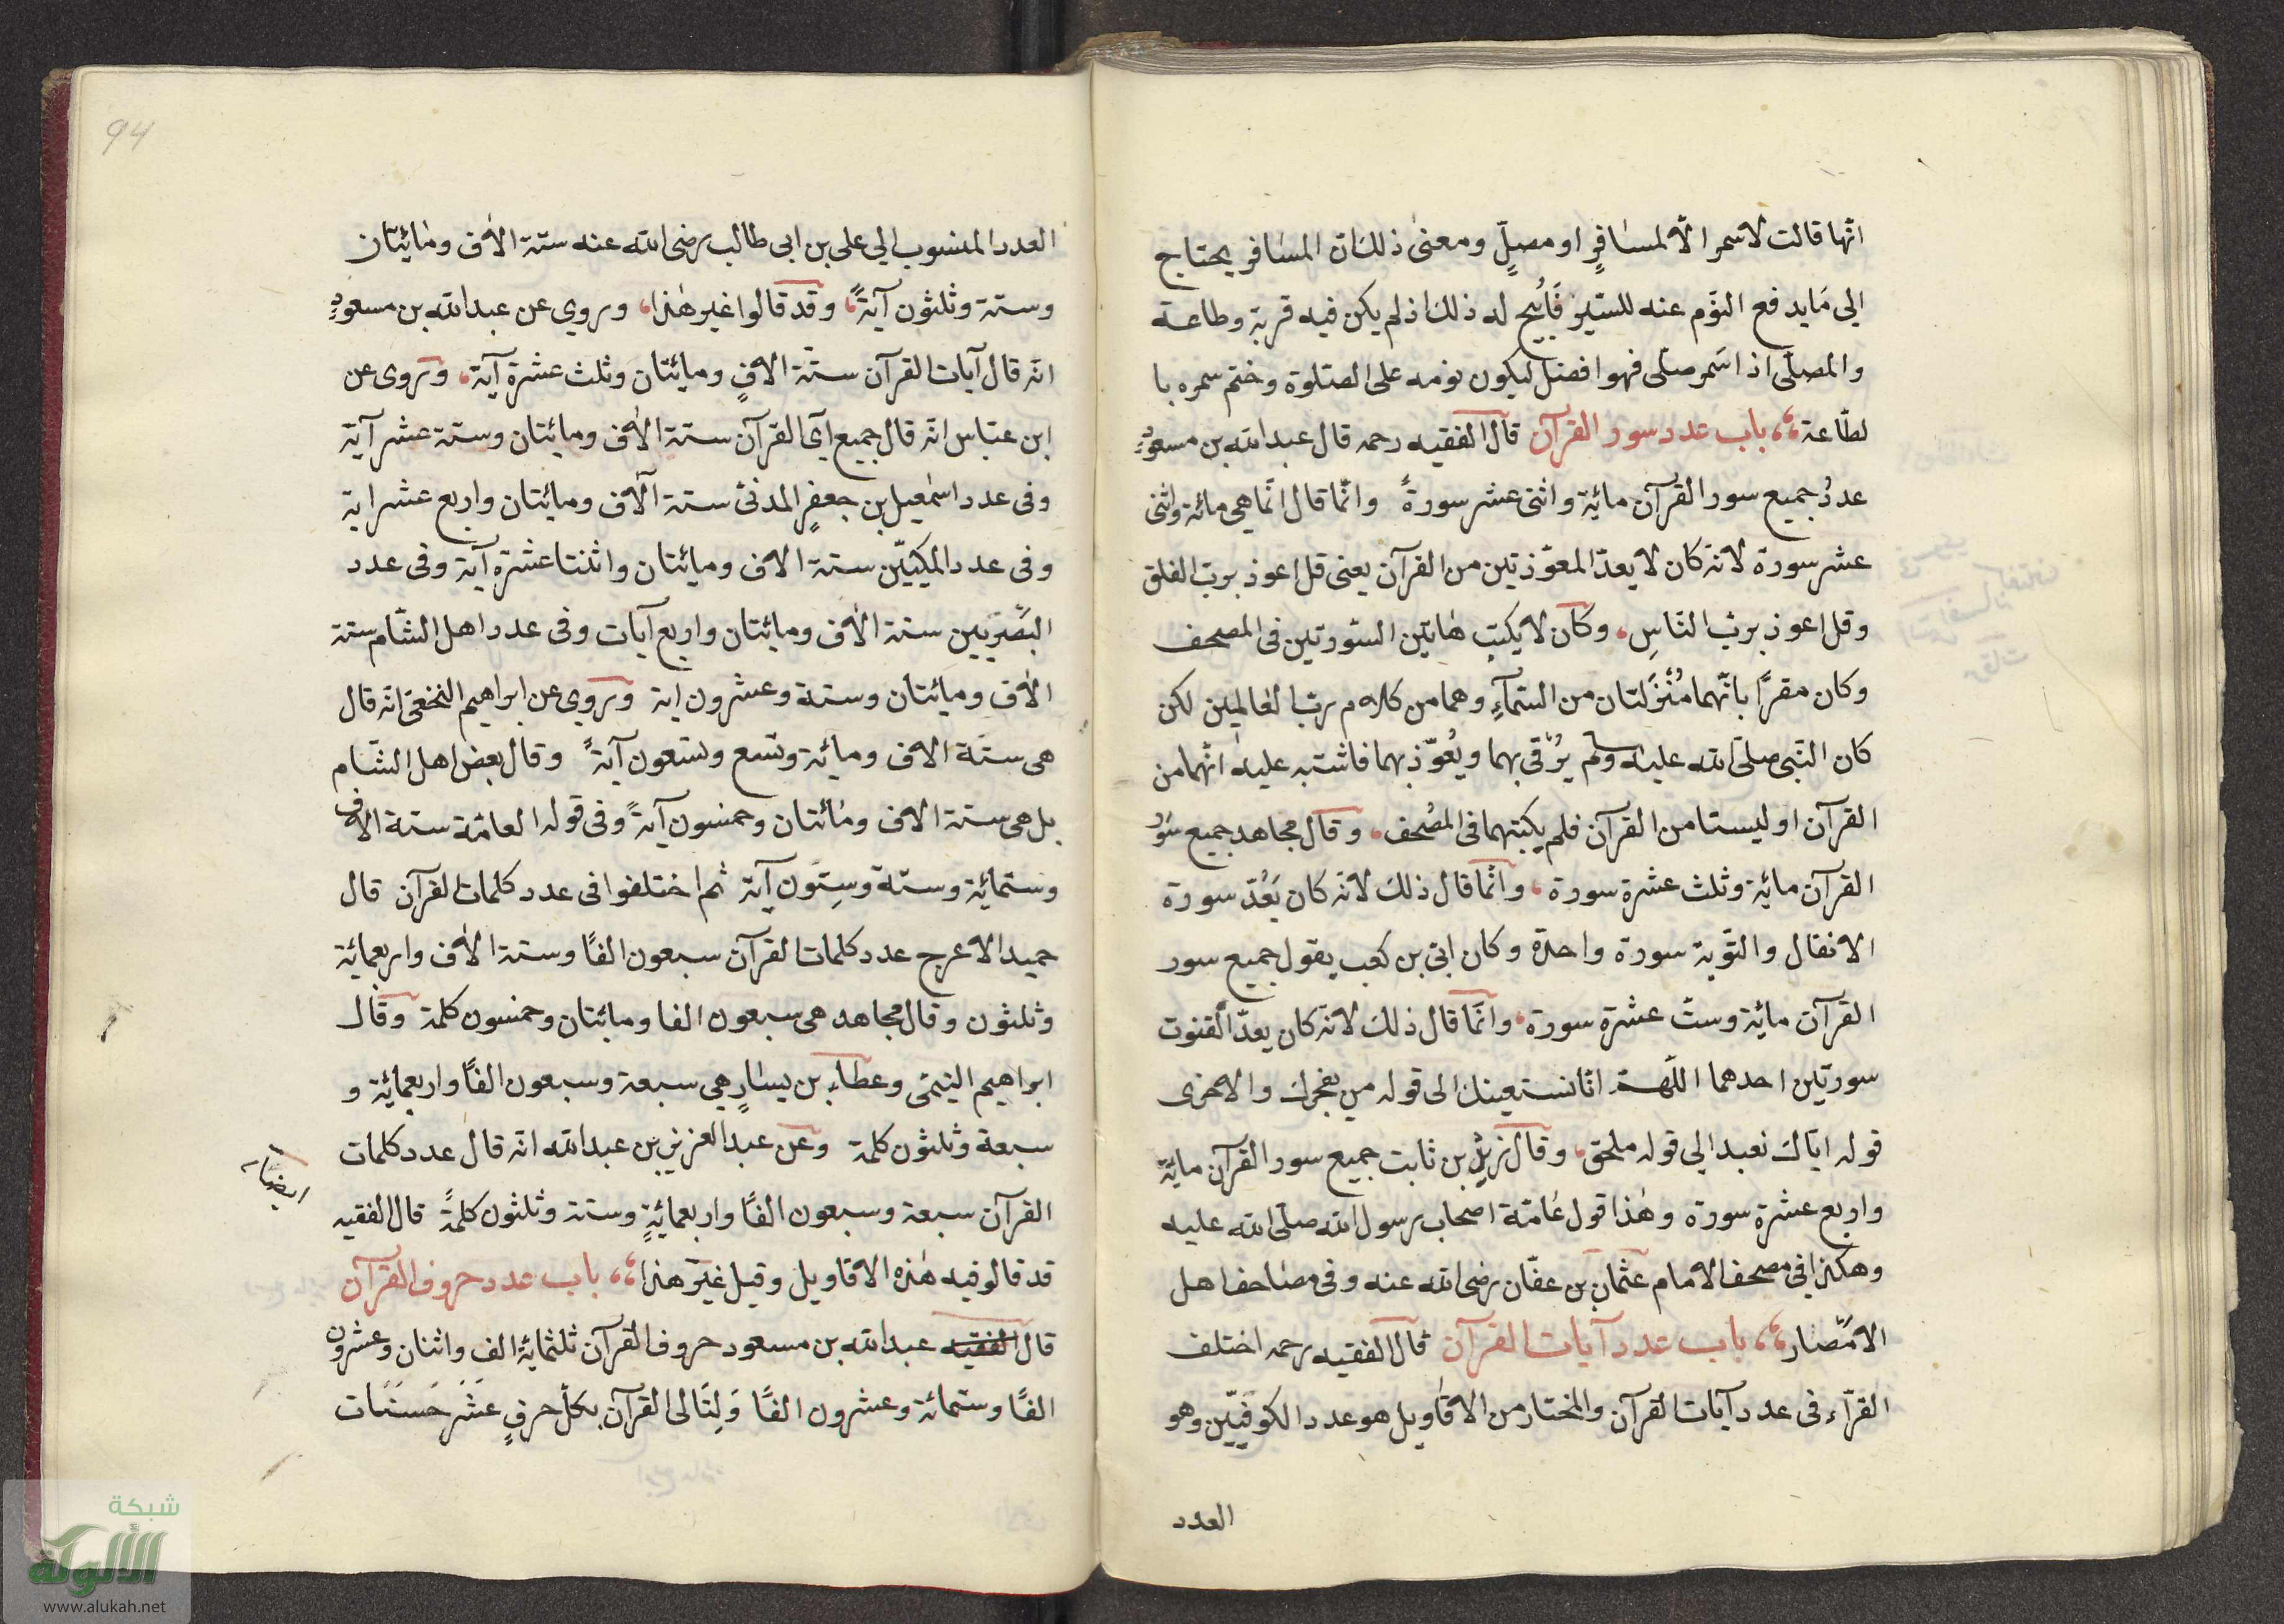 انّها قالت لا سمر الّا لمسافرٍ او مصلٍّ ومعنى ذلك انّ المسافر يحتاج
الي مَا يدفع النوَم عنه للسّير فَاُبيح له ذلك اذ لم يكن فيه قربة وطاعة
والمصلّى اذا سَمر صلّى فهوا فضل ليكون نومه على الصّلوة وختم سمره با
لطّاعة باب عدد سور القرآن قال الفقيه رحمه قال عبد الله بن مسعودٍ
عددُ جميع سور القرآن مائة واثنى عشر سورةً وانّما قال انّما هي مائة واثنى
عشر سورة لانّه كان لا يعدّ المعوّذتين من القرآن يعنى قل اعوذ بربّ الفلق
وقل اعوذ بربّ النّاسِ وكان لا يكتب هاتين السّورتين فى المصحف
وكان مقرّا بانّهما مُنْزَلتان من السّمآءِ وهما من كلام ربّ العالمين لكن
كان النّبى صلّى الله عليه وسلم يرُقى بهما ويُعوّذ بهما فاشتبه عليه انّهما من
القرآن او ليستا من القرآن فلم يكتبهما فى المصُحف وقال مجاهد جميع سُور
القرآن مائة وثلث عشرة سورة وانّما قال ذلك لانّه كان يَعُدّ سورة
الانفال والتّوبة سورة واحدة وكان ابّى بن كعب يقول جميع سور
القرآن مائة وستّ عشرة سورة وانّما قال ذلك لانّه كان يعدّ القنوت
سورتين احدهما اللّهمّ انّا نستعينك الى قوله من يفجرك والاخرى
قوله ايّاك نعبد الي قوله ملحق وقال زيد بن ثابت جميع سور القرآن مائة
واربع عشرة سورة وهٰذا قول عَامّة اصحاب رسول الله صلّى الله عليه
وهكذا في مصحف الامام عثمان بن عفّان رضى الله عنه وفى مصَاحف اهل
الامْصار باب عدد آيات القرآن قال الفقيه رحمه اختلف
القرّآء فى عدد آيات القرآن والمختار من الاقاويل هو عدد الكوفيّين وهو
العدد
94
العدد المنسوب الي على بن ابى طالب رضى الله عنه ستة الاٰف ومائيتان
وستة وثلثون آيةً وقد قالوا غير هٰذا وروي عن عبد الله بن مسعودٍ
انّه قال آيات القرآن ستّة الافٍ ومائتان وثلث عشرة آية وروى عن
ابن عبّاس انّه قال جميع آي القرآن ستة الاٰف ومائتان وستة عشر آية
وفى عدد اسمٰعيل بن جعفرٍ المدنىّ ستة آلاف ومائتان واربع عشر اية
وفى عدد المكيّين ستة الاف ومائتان واثنتا عشرة آية وفى عدد
البصّريين ستة الاٰف ومائتان واربع آيات وفى عدد اهل الشّام ستة
الاٰف ومائتان وستة وعشرون اية وروي عن ابراهيم النخعىّ انّه قال
هى ستّة الاف ومائة وتسع وتسعون آيةً وقال بعض اهل الشّام
بل هى ستة الاف ومائتان وخمسون آيةً وفى قوله العامّة ستة الاف
وستمائة وستّة وستّون آية ثم اختلفوا فى عدد كلمات القرآن قال
حميد الاعرج عدد كلمات القرآن سبعون الفًا وستة الاٰف واربعمائة
وثلثون وقال مجاهد هى سبعون الفا ومائتان وخمسون كلمة وقال
ابراهيم التيمّى وعطاء بن يسَارٍ هي سبعة وسبعون الفًا واربعمائة و
سبعة وثلثون كلمة وعن عبد العزيز بن عبد الله انّه قال عدد كلمات
ايضًا
القرآن سبعة وسبعون الفًا واربعمائةٍ وستة وثلثون كلمةً قال الفقيه
قد قالو فيه هٰذه الاقاويل وقيل غير هٰذا باب عدد حروف القرآن
قال الفقيه عبد الله بن مسعود حروف القرآن ثلثمائة الف واثنان وعشرون
الفًا وستّمائة وعشرون الفًا وَلِتَالى القرآن بكلّ حرفٍ عَشَر حَسَنَات
شبكة
الألوكة
www.alukah.net